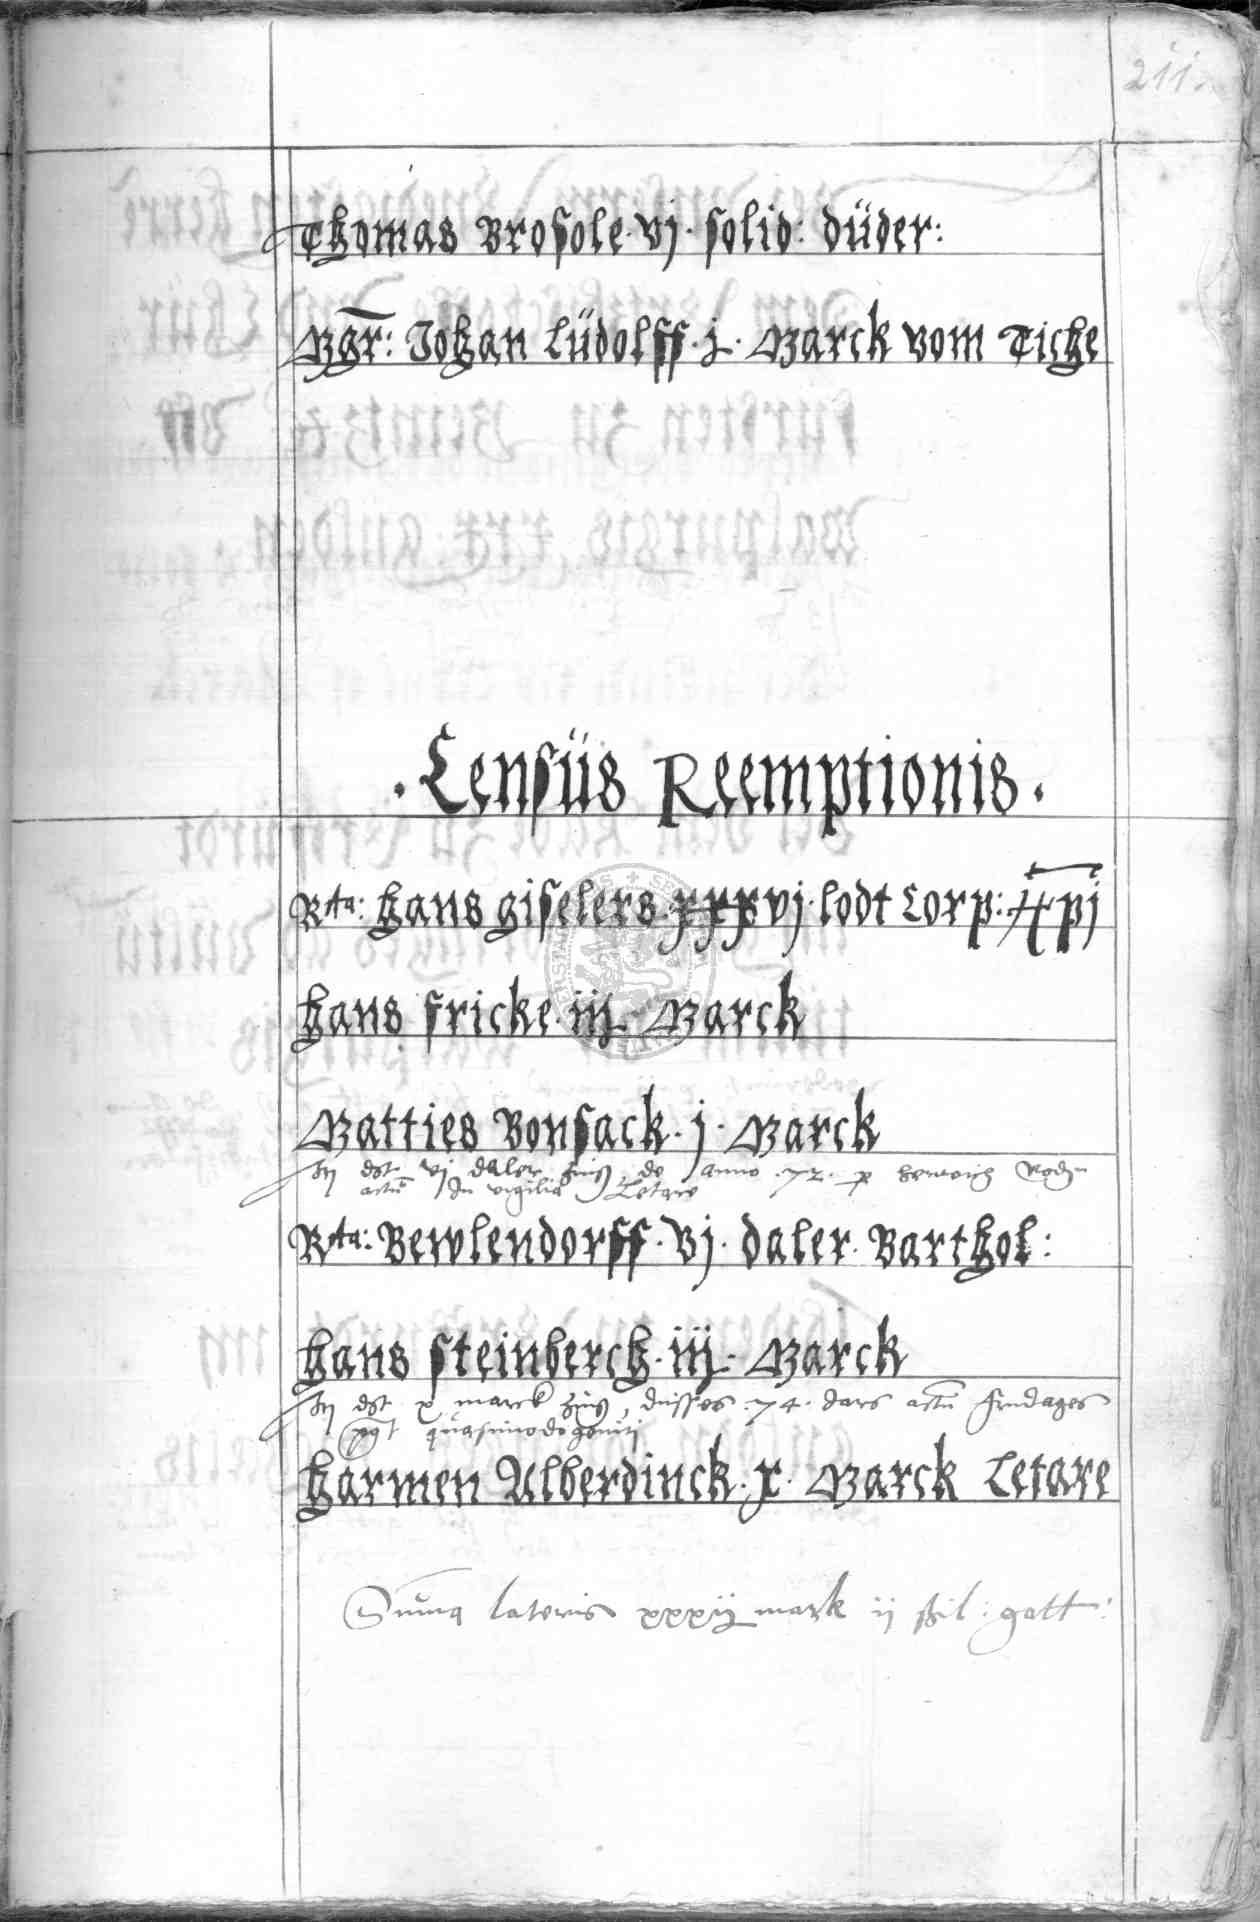 211.
Thomas Brosole · vj · solid: düder:
Mgr: Johan Lüdolff · j · Marck vom Tiche
· Censüs Reemptionis ·
Rta: Hans giselers · xxxvj · lodt Corp: Xpi
Hans fricke · iij · Marck
Matties Bonsack · j · Marck
dst vj daler zins de anno · 72 · p henrich
actu In vigilia Letare
Rta: Bewlendorff · vj · daler · Barthol:
Hans steinberch · iij · Marck
dst x marck zins, dusses · 74 · dars actu frudages
pgt quasimodogeniti
Harmen Alberdinck · x · Marck Letare
Suma lateris xxxij mark ij ßil: gott: